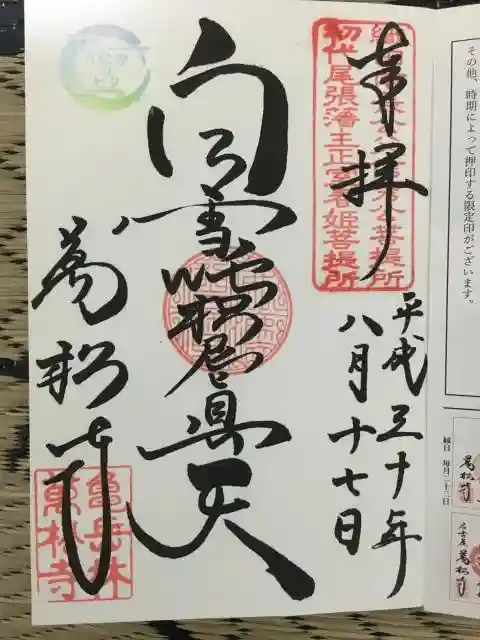 その他、時期によって押印する限定印がございます。
奉拝
初代尾張藩主正室春姫菩提所
平成三十年
八月十七日
白雪吒枳尼眞天
萬松寺
亀岳林
萬松寺
縁日 毎月二十三日
萬松寺
名古屋 萬松寺